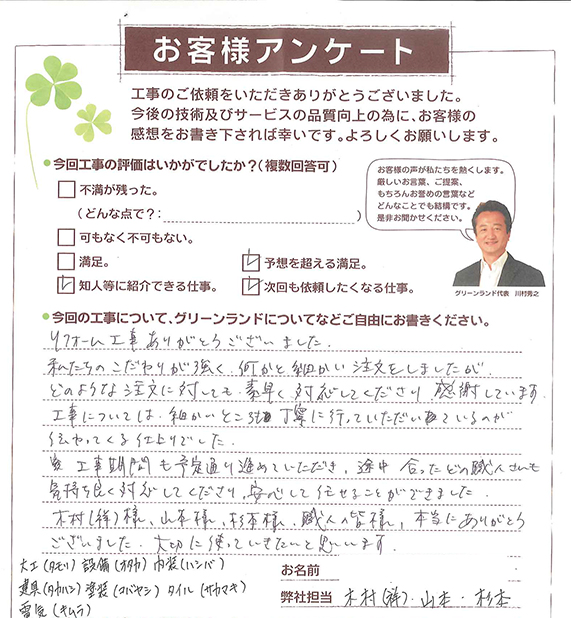 お客様アンケート
工事のご依頼をいただきありがとうございました。
今後の技術及びサービスの品質向上の為に、お客様の
感想をお書き下されば幸いです。よろしくお願いします。
今回工事の評価はいかがでしたか？(複数回答可)
不満が残った。
（どんな点で？:
可もなく不可もない。
満足。
予想を超える満足。
知人等に紹介できる仕事。
次回も依頼したくなる仕事。
お客様の声が私たちを熱くします。
厳しいお言葉、ご提案、
もちろんお誉めの言葉など
どんなことでも結構です。
是非お聞かせください。
グリーンランド代表 川村秀之
今回の工事について、グリーンランドについてなどご自由にお書きください。
リフォーム工事ありがとうございました。
私たちのこだわりが強く、何かと細かい注文をしましたが、
どのような注文に対しても、素早く対応してくださり感謝しています。
工事については、細かいところも丁寧に行っていただいているのが
伝わってくる仕上りでした。
工事期間も予定通り進めていただき、途中会ったどの職人さんも
気持ち良く対応してくださり、安心して任せることができました。
木村(祥)様、山本様、杉本様、職人の皆様、本当にありがとう
ございました。大切に使っていきたいと思います。
大工(タモリ) 設備(オタカ) 内装(ハンバ)
建具(タカハシ) 塗装(コバヤシ) タイル(サカマキ)
電気(キムラ)
お名前
弊社担当 木村(祥)・山本・杉本